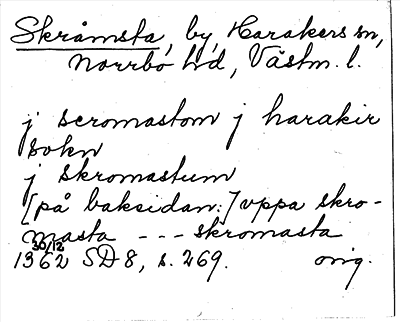 Skråmsta, by, Harakers sn,
Norrbo hd, Västm. l.
j scromastom j harakir
sokn
j skromastum
[på baksidan:] vppa skro-
masta --- skromasta
30/12
1362 SD 8, s. 269. orig.